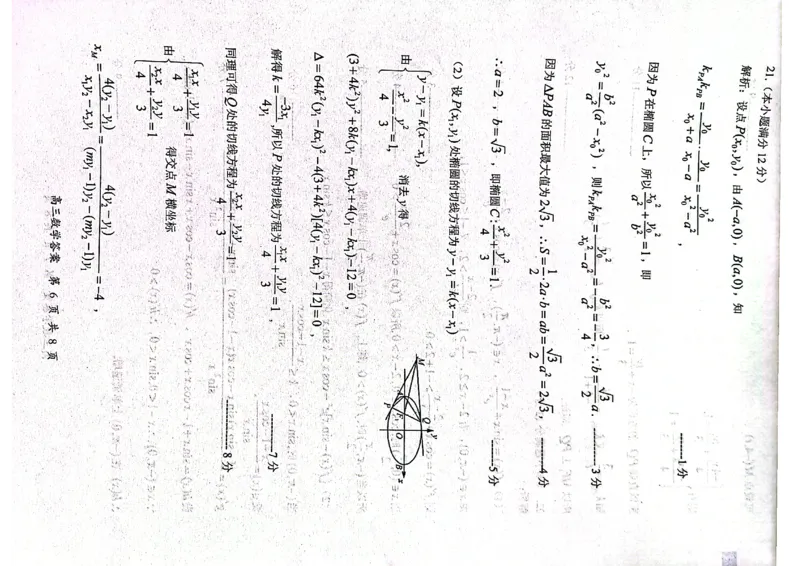 21.（本小题满分 12 分）
解析：设点P(x₀,y₀)，由 A(-a,0)，B(a,0)，知
k_PA k_PB = y₀/(x₀+a) · y₀/(x₀-a) = y₀²/(x₀²-a²)， ——1分
因为 P 在椭圆 C 上，所以 x₀²/a² + y₀²/b² = 1，即
y₀² = b²/a² (a²-x₀²)，则 k_PA k_PB = y₀²/(x₀²-a²) = -b²/a² = -3/4，∴b = √3/2 a. ——3分
因为 ΔPAB 的面积最大值为 2√3，∴S = 1/2 · 2a·b = ab = √3/2 a² = 2√3， ——4分
∴a=2，b=√3，即椭圆 C: x²/4 + y²/3 = 1. ——5分
（2）设 P(x₁,y₁) 处椭圆的切线方程为 y-y₁=k(x-x₁)
由 { y-y₁=k(x-x₁), x²/4 + y²/3 = 1, 消去 y 得
(3+4k²)y²+8k(y₁-kx₁)x+4(y₁-kx₁)²-12=0，
Δ=64k²(y₁-kx₁)²-4(3+4k²)[4(y₁-kx₁)²-12]=0，
解得 k = -3x₁/4y₁，所以 P 处的切线方程为 x₁x/4 + y₁y/3 = 1， ——7分
同理可得 Q 处的切线方程为 x₂x/4 + y₂y/3 = 1 ——8分
由 { x₁x/4 + y₁y/3 = 1, x₂x/4 + y₂y/3 = 1 得交点 M 横坐标
x_M = 4(y₂-y₁)/(x₁y₂-x₂y₁) = 4(y₂-y₁)/((my₁-1)y₂-(my₂-1)y₁) = -4，
M
Q
y
P
O
B
x
高三数学答案 第 6 页 共 8 页